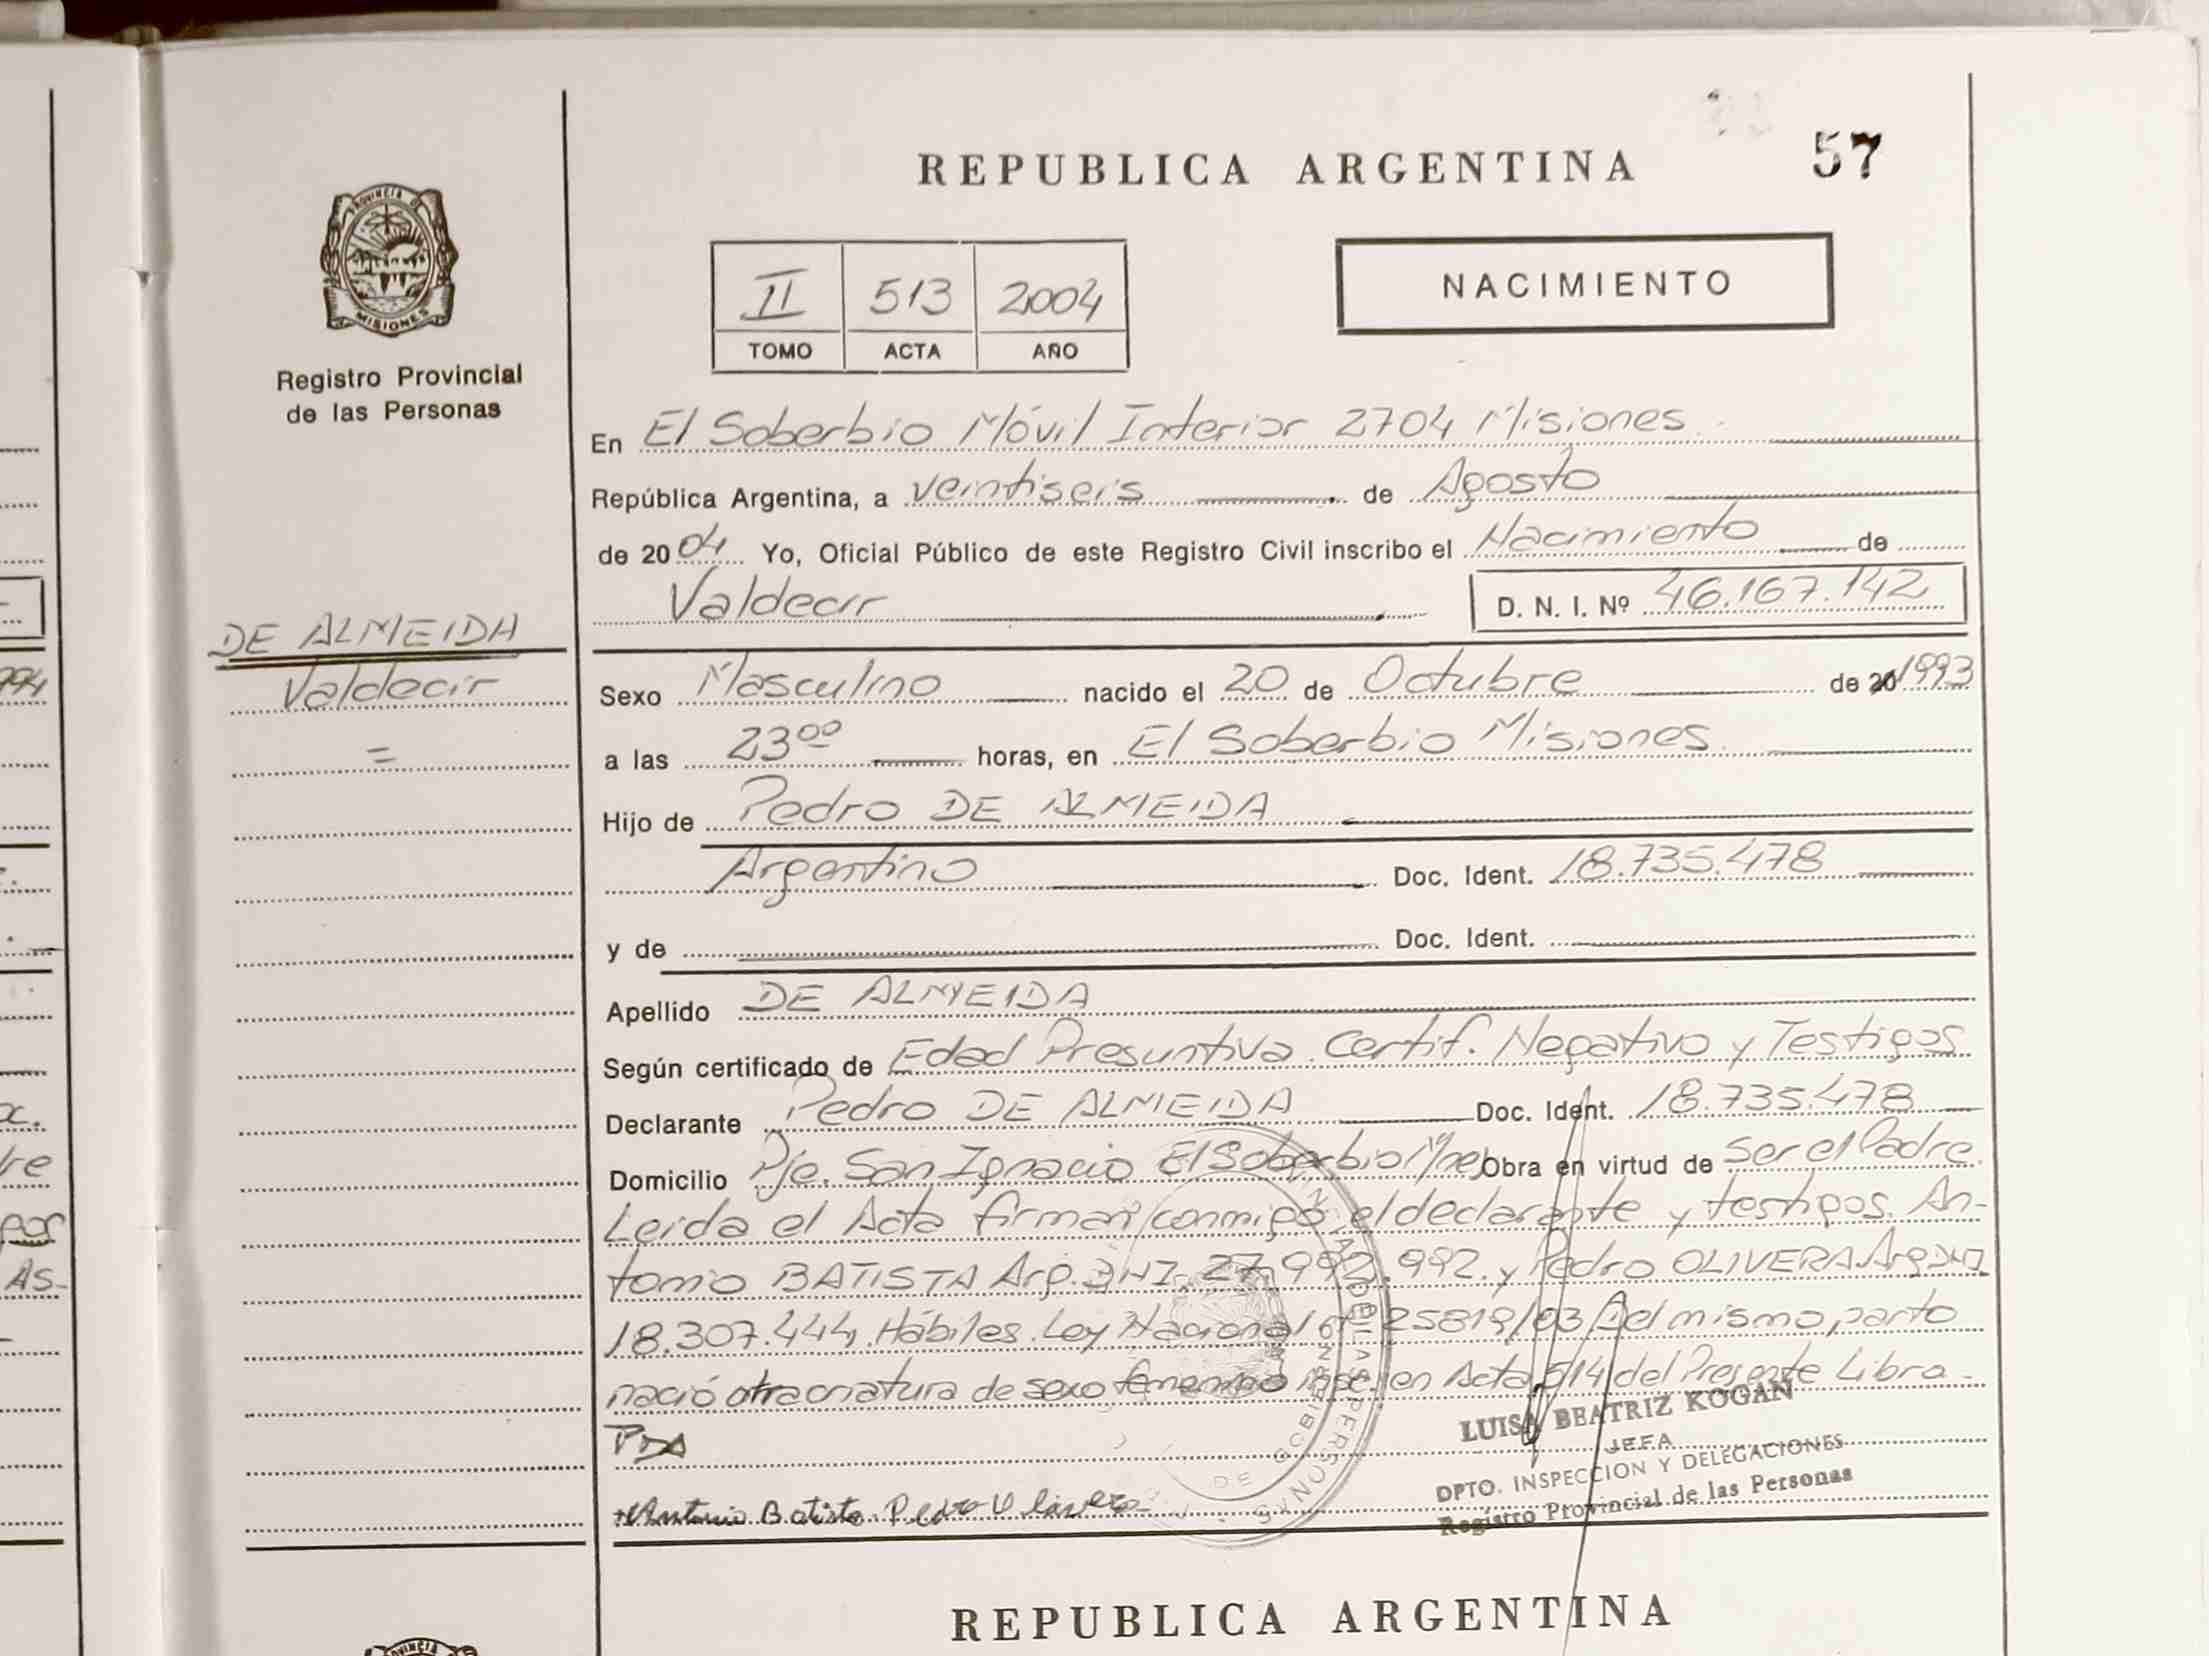 REPUBLICA ARGENTINA 57
PROVINCIA DE MISIONES
II 513 2004
TOMO ACTA AÑO
NACIMIENTO
Registro Provincial
de las Personas
En El Soberbio Móvil Interior 2704 Misiones
República Argentina, a veintiseis de Agosto
de 2004 Yo, Oficial Público de este Registro Civil inscribo el Nacimiento de
Valdecir D. N. I. Nº 46.167.142
DE ALMEIDA
Valdecir
Sexo Masculino nacido el 20 de Octubre de 20 1993
a las 23⁰⁰ horas, en El Soberbio Misiones
Hijo de Pedro DE ALMEIDA
Argentino Doc. Ident. 18.735.478
y de Doc. Ident.
Apellido DE ALMEIDA
Según certificado de Edad Presuntiva. Certif. Negativo y Testigos
Declarante Pedro DE ALMEIDA Doc. Ident. 18.735.478
Domicilio Pje. San Ignacio El Soberbio Mnes Obra en virtud de ser el Padre.
Leida el Acta firman conmigo el declarante y testigos. An-
tonio BATISTA Arg. DNI. 27.992.992. y Pedro OLIVERA Arg DNI
18.307.444. Hábiles. Ley Nacional nº 25819/03 Del mismo parto
nació otra criatura de sexo femenino insc. en Acta 514 del Presente Libro.
PDA
LUISA BEATRIZ KOGAN
JEFA
DPTO. INSPECCION Y DELEGACIONES
Registro Provincial de las Personas
Antonio Batista Pedro Olivera
REPUBLICA ARGENTINA